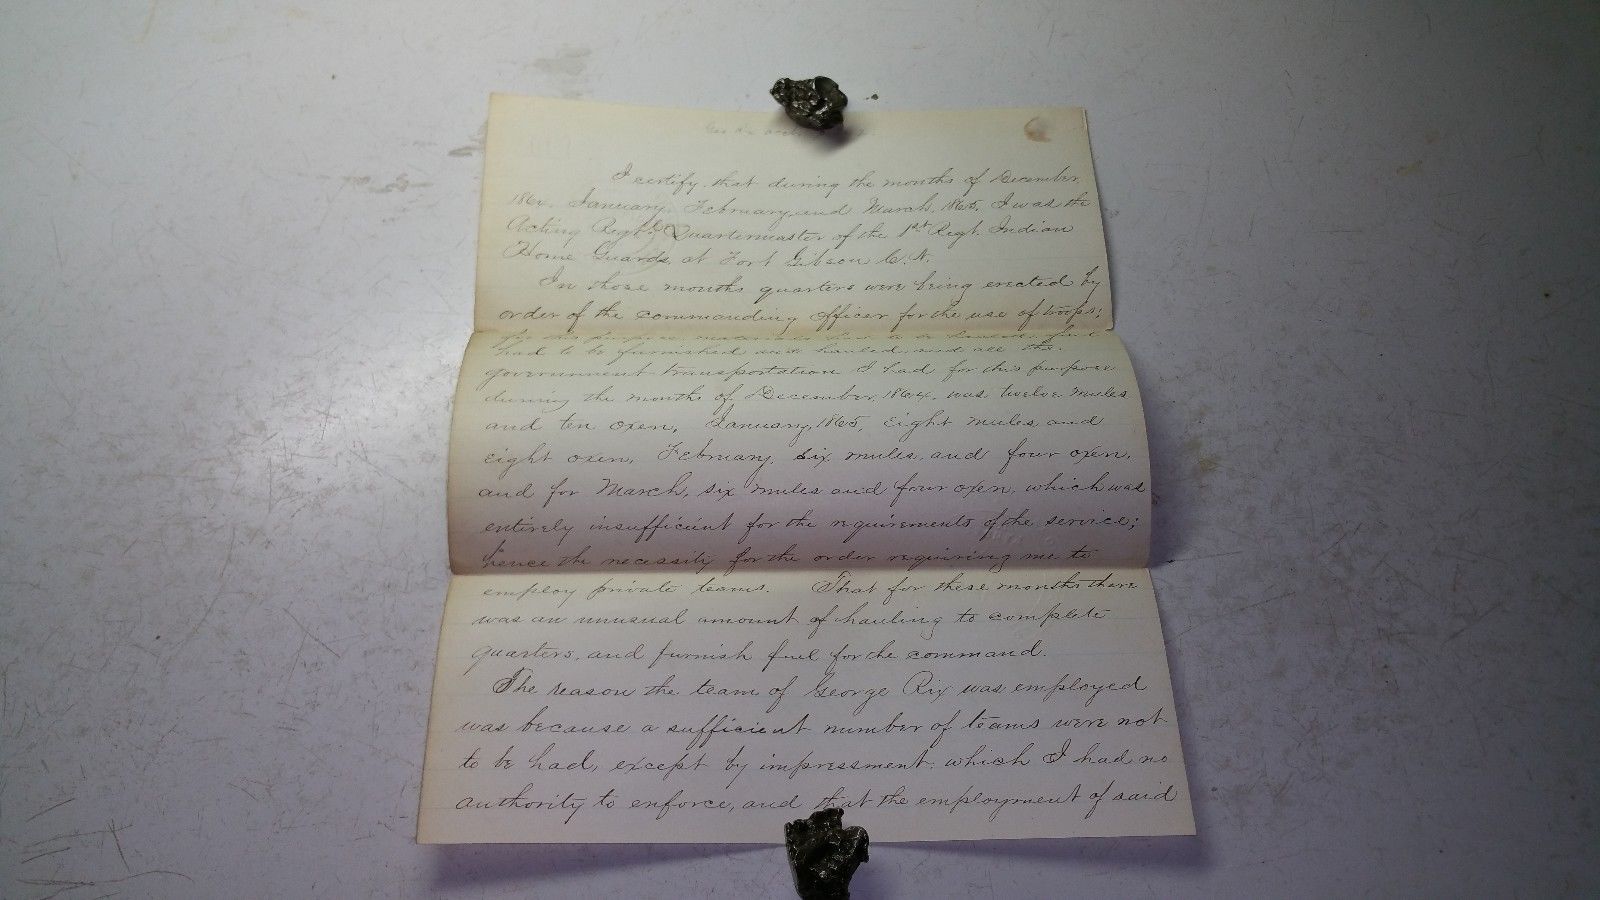 I certify, that during the months of December,
1864, January, February, and March, 1865, I was the
Acting Regtl Quartermaster of the 1st Regt. Indian
Home Guards, at Fort Gibson C.N.
In those months quarters were being erected by
order of the commanding officer for the use of troops;
for
had to be furnished and hauled, and all the
government transportation I had for this purpose
during the months of December, 1864, was twelve mules
and ten oxen, January, 1865, eight mules, and
eight oxen, February, six mules, and four oxen,
and for March, six mules and four oxen, which was
entirely insufficient for the requirements of the service;
hence the necessity for the order requiring me to
employ private teams. That for these months there
was an unusual amount of hauling to complete
quarters, and furnish fuel for the command.
The reason the team of George Rix was employed
was because a sufficient number of teams were not
to be had, except by impressment, which I had no
authority to enforce, and that the employment of said